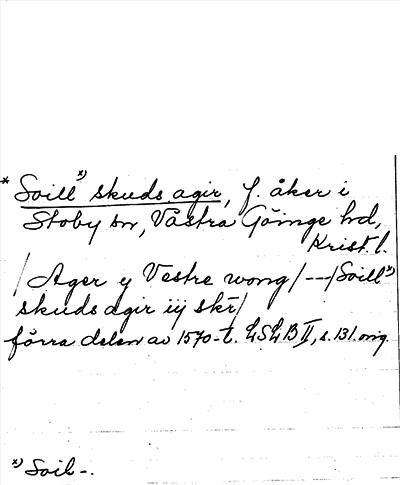 * Soill*) skuds agir, f. åker i
Stoby sn, Västra Göinge hd,
Krist. l.
/Ager y Vestre wong/---/Soill*)
skuds agir iij skr/
förra delen av 1570-t. LSLB II, s. 131. orig.
*) Soil-.